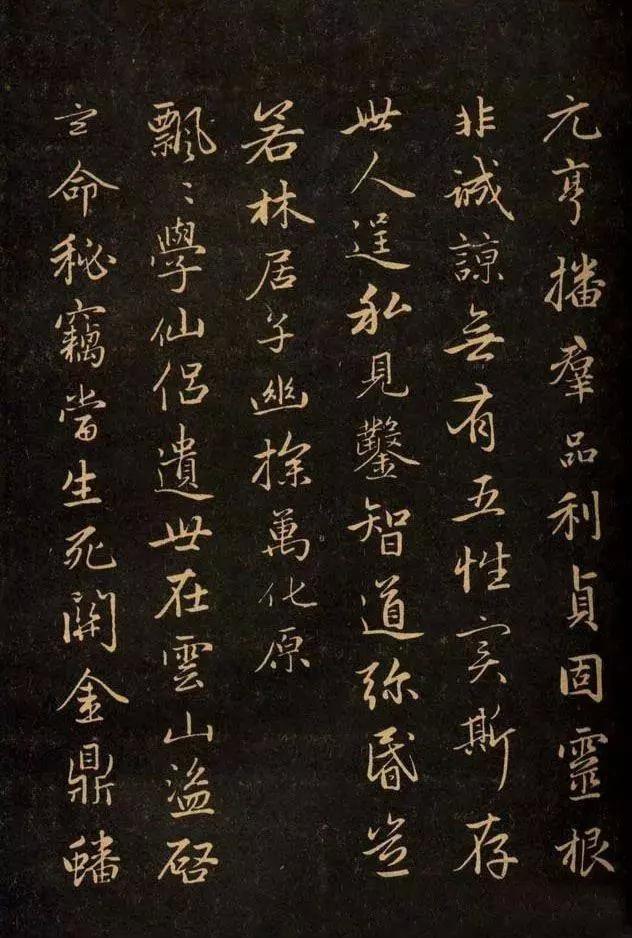 元亨播羣品利貞固靈根
非誠諒無有五性实斯存
世人逞私見鑿智道弥昬豈
若林居子幽探萬化原
飄〻學仙侣遺世在雲山盜啓
玄命秘竊當生死關金鼎蟠